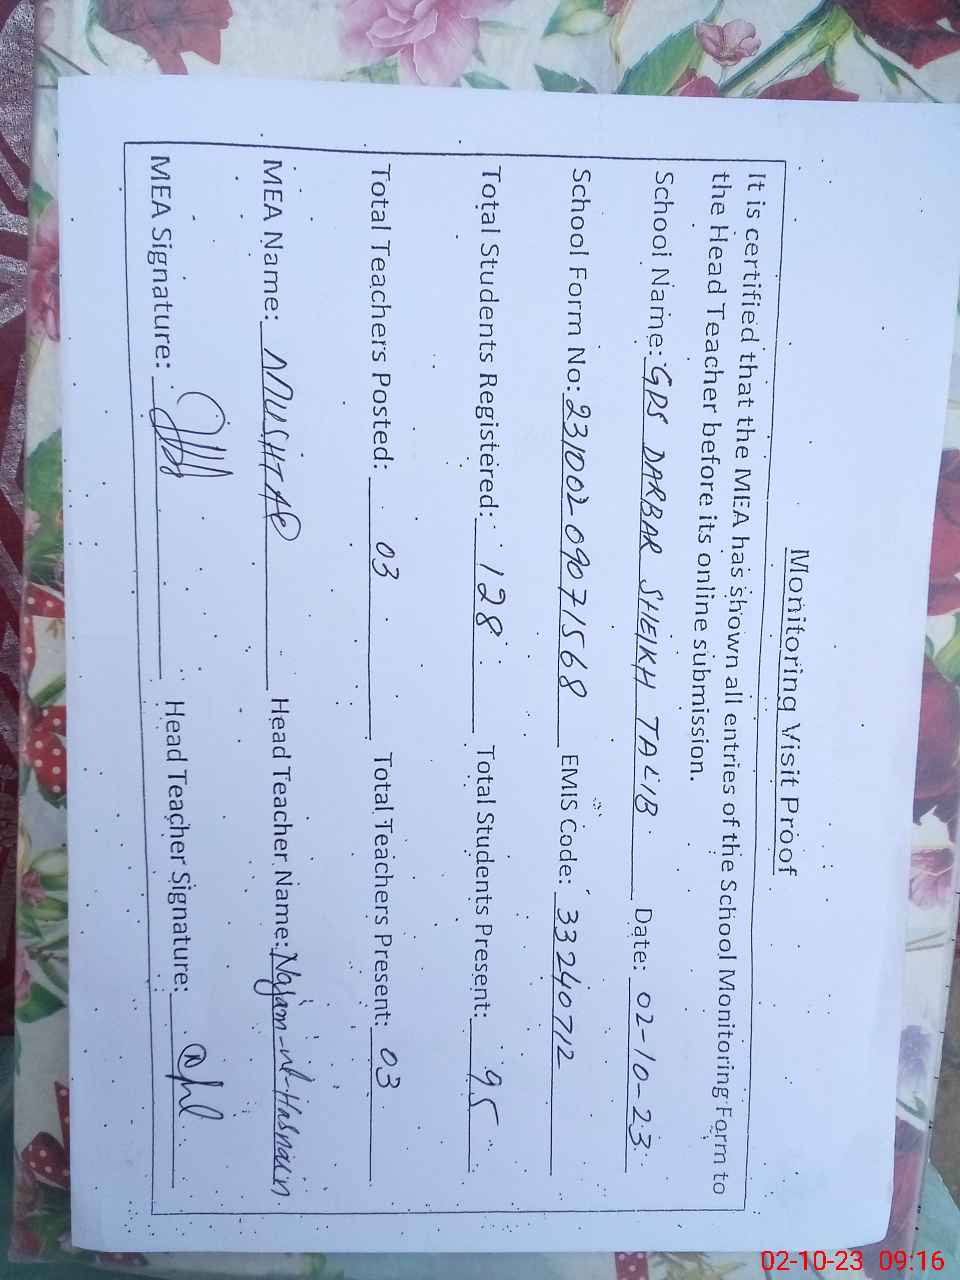 Monitoring Visit Proof
It is certified that the MEA has shown all entries of the School Monitoring Form to
the Head Teacher before its online submission.
School Name: GPS DARBAR SHEIKH TALIB Date: 02-10-23
School Form No: 231002-09071568 EMIS Code: 33240712
Total Students Registered: 128 Total Students Present: 95
Total Teachers Posted: 03 Total Teachers Present: 03
MEA Name: MUSHTAQ Head Teacher Name: Najam-ul-Hasnain
MEA Signature: Head Teacher Signature:
02-10-23 09:16